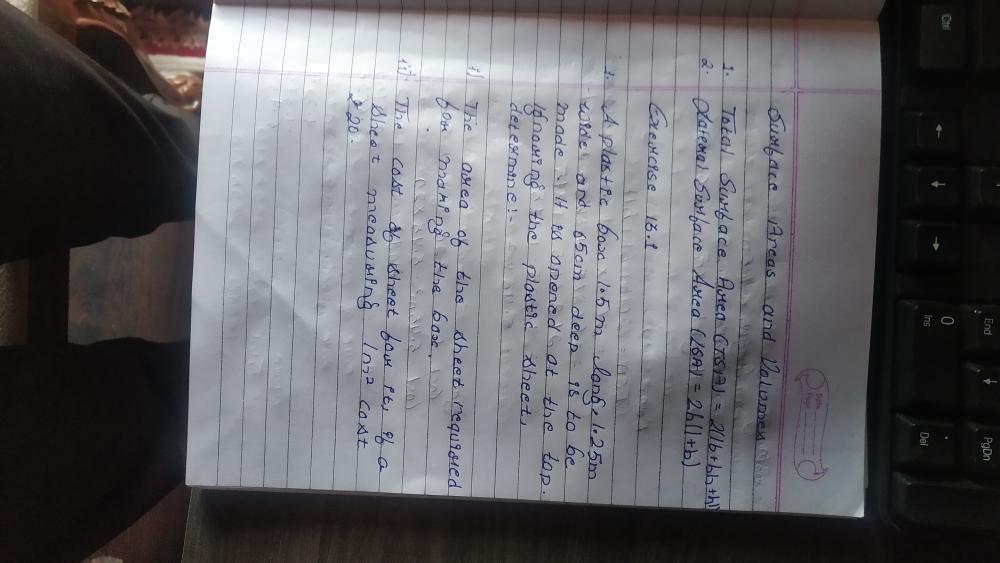 Date
Page
Surface Areas and Volumes
1. Total Surface Area (TSA) = 2(lb+bh+hl)
2. Lateral Surface Area (LSA) = 2h(l+b)
Exercise 13.1
1. A plastic box 1.5m long, 1.25m
wide and 65cm deep is to be
made. It is opened at the top.
Ignoring the plastic sheet,
determine:-
i) The area of the sheet required
for making the box.
ii) The cost of sheet for it, if a
sheet measuring 1m² cost
₹20.
Ctrl
←
↓
→
End
0
Ins
Del
PgDn